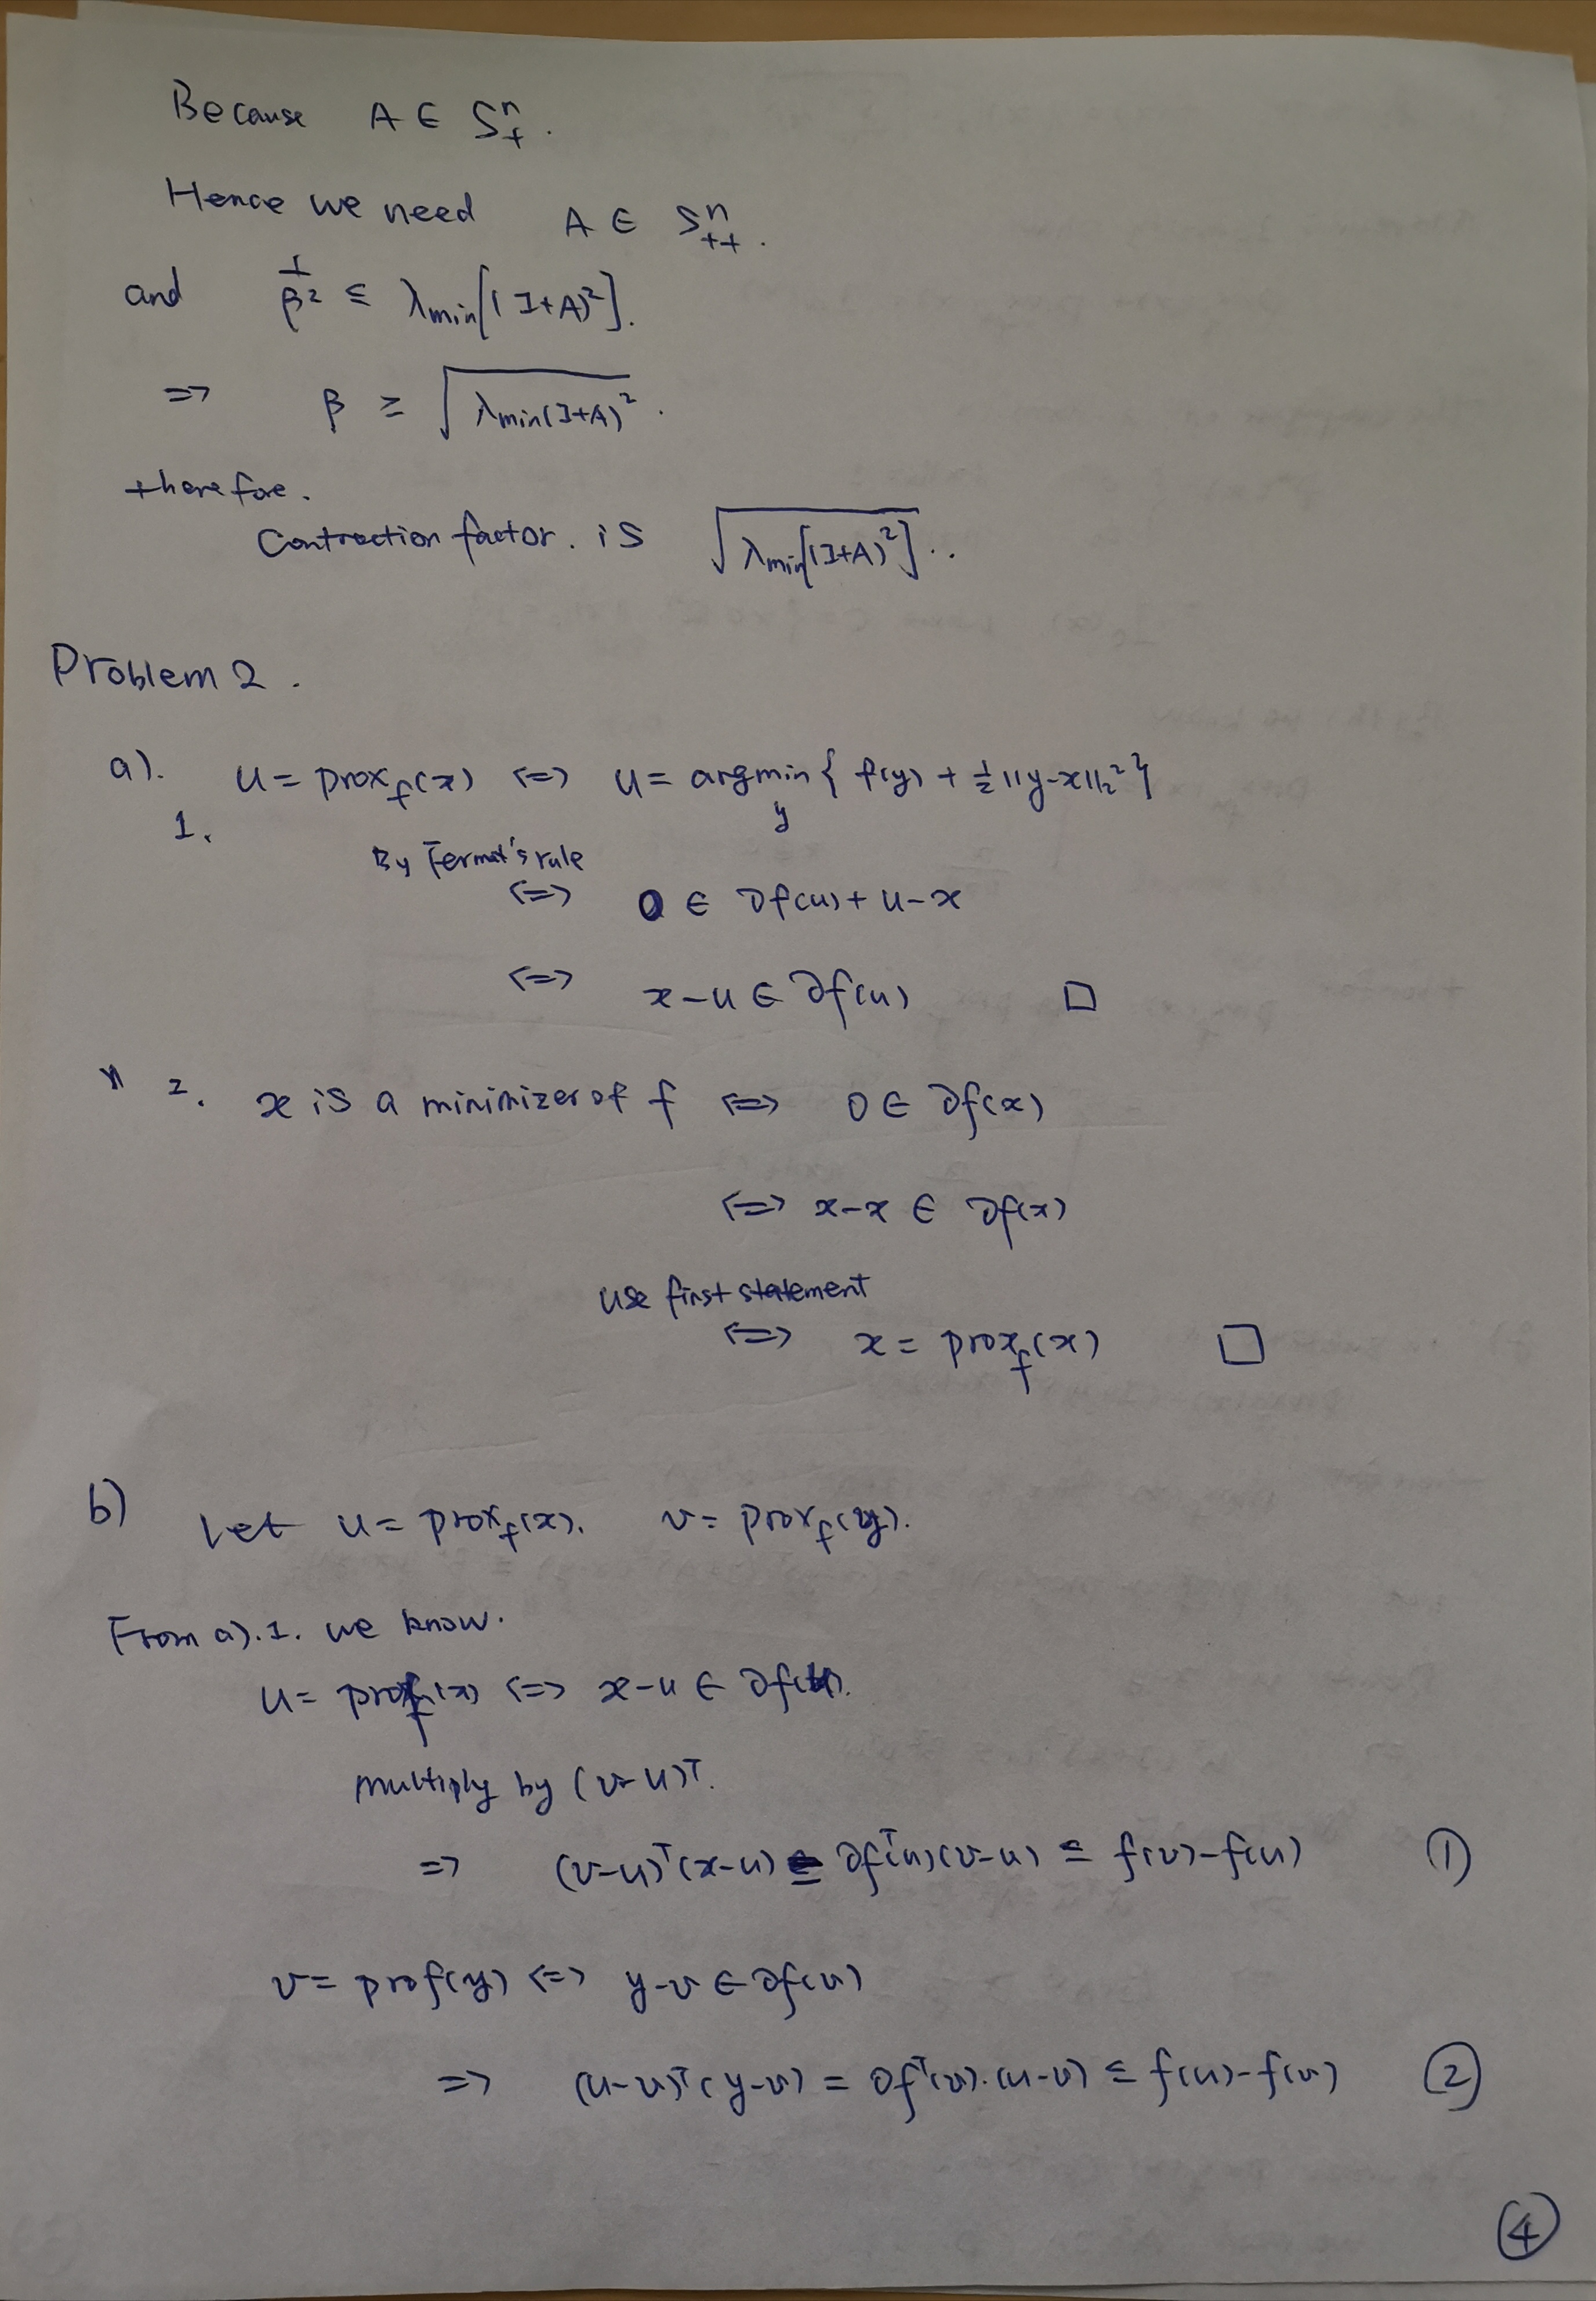 Because A ∈ S₊ⁿ.
Hence we need A ∈ S₊₊ⁿ.
and 1/β² ≤ λmin[(I+A)²].
=> β ≥ √(λmin(I+A)²).
therefore.
Contraction factor. is √(λmin[(I+A)²])..
Problem 2.
a). u = prox_f(x) <=> u = argmin_y { f(y) + ½||y-x||₂² }
1.
By Fermat's rule
<=> 0 ∈ ∂f(u) + u-x
<=> x-u ∈ ∂f(u) □
2. x is a minimizer of f <=> 0 ∈ ∂f(x)
<=> x-x ∈ ∂f(x)
use first statement
<=> x = prox_f(x) □
b) Let u = prox_f(x). v = prox_f(y).
From a).1. we know.
u = prox_f(x) <=> x-u ∈ ∂f(u).
multiply by (v-u)ᵀ.
=> (v-u)ᵀ(x-u) = ∂fᵀ(u)(v-u) ≤ f(v)-f(u) ①
v = prof(y) <=> y-v ∈ ∂f(v)
=> (u-v)ᵀ(y-v) = ∂fᵀ(v).(u-v) ≤ f(u)-f(v) ②
④